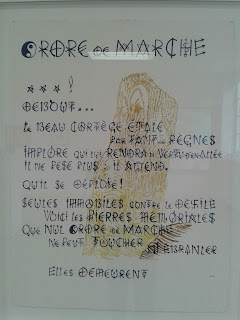 ORDRE DE MARCHE
★ ★ ★ !
DEBOUT...
LE BEAU CORTÈGE ÉTALÉ
PAR TANT DE RÈGNES
IMPLORE QUI LUI RENDRA SA VERTU EN ALLÉE
IL NE PÈSE PLUS : IL ATTEND.
QU'IL SE DÉPLOIE !
SEULES IMMOBILES CONTRE LE DÉFILÉ
VOICI LES PIERRES MÉMORIALES
QUE NUL ORDRE DE MARCHE
NE PEUT TOUCHER NI ÉBRANLER
ELLES DEMEURENT